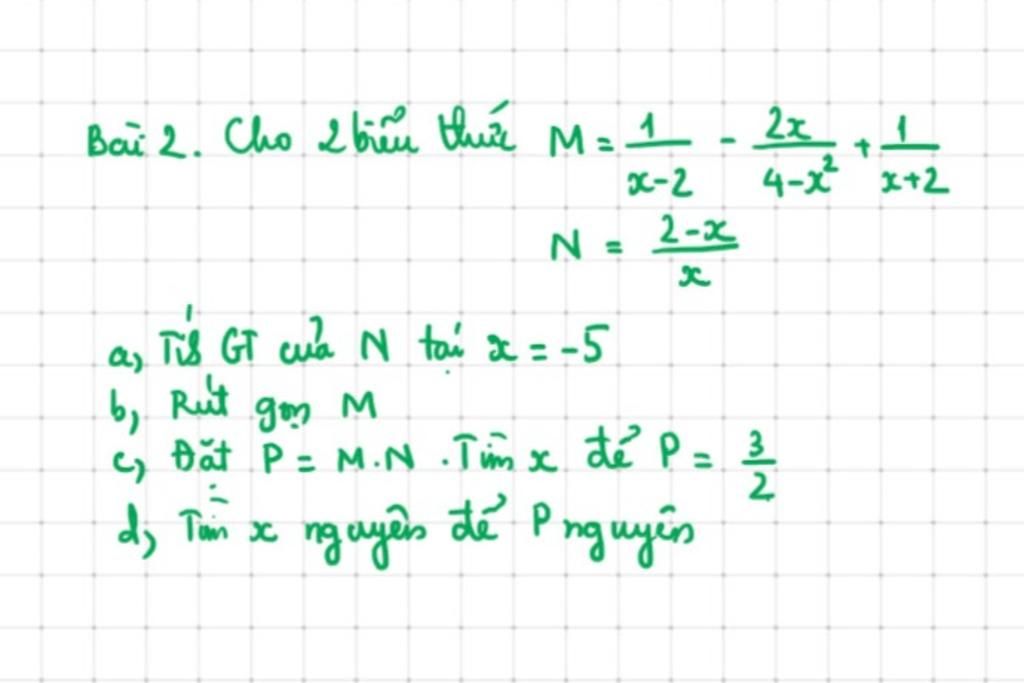 Bài 2. Cho 2 biểu thức M = \frac{1}{x-2} - \frac{2x}{4-x^2} + \frac{1}{x+2}
N = \frac{2-x}{x}
a, Tính GT của N tại x = -5
b, Rút gọn M
c, Đặt P = M.N. Tìm x để P = \frac{3}{2}
d, Tìm x nguyên để P nguyên